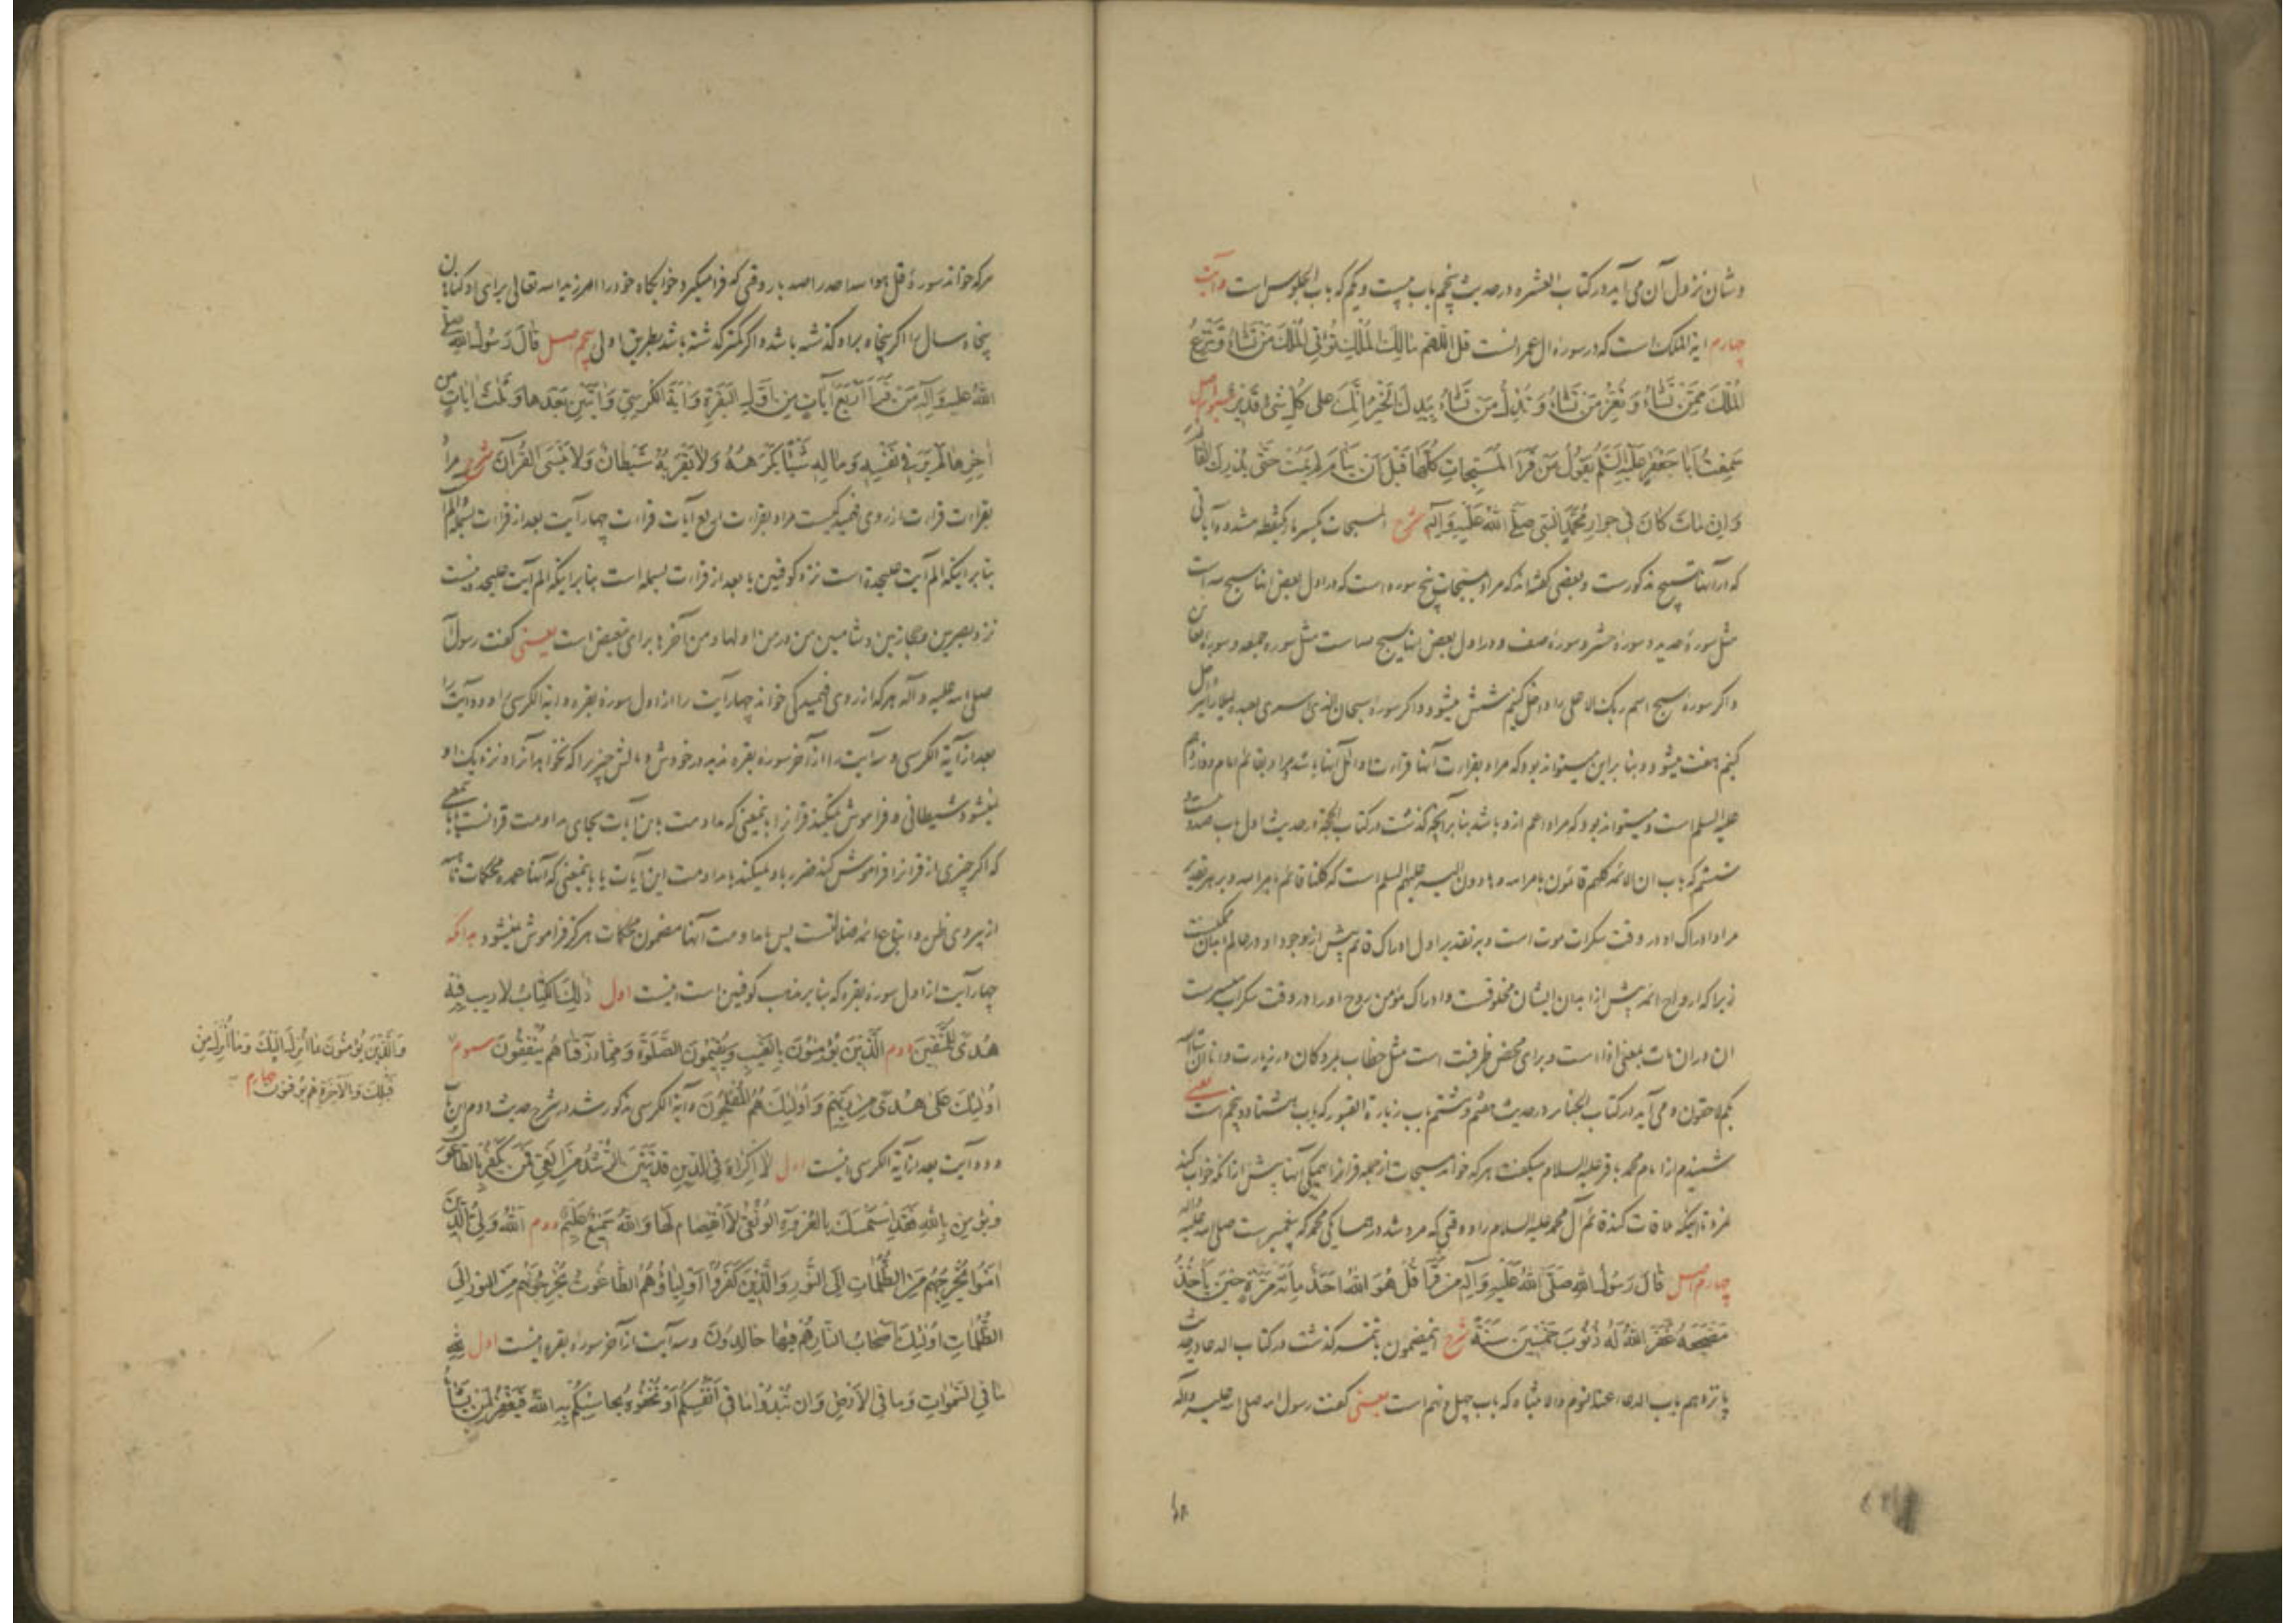 و شان نزول آن می آید در کتاب العشره در حدیث پنجم باب بیست و یکم که باب الجلوس است و آیت
چهارم آیة الملک است که در سوره آل عمرانست قل اللهم مالِكَ الْمُلْكِ تُؤْتِي الْمُلْكَ مَنْ تَشاءُ وَتَنْزِعُ
الْمُلْكَ مِمَّنْ تَشاءُ وَتُعِزُّ مَنْ تَشاءُ وَتُذِلُّ مَنْ تَشاءُ بِيَدِكَ الْخَيْرُ إِنَّكَ عَلى كُلِّ شَيْءٍ قَدِيرٌ سوم اصل
سَمِعْتُ أَبَا جَعْفَرٍ عَلَيْهِ السَّلَمُ يَقُولُ مَنْ قَرَأَ الْمُسَبِّحَاتِ كُلَّهَا قَبْلَ أَنْ يَنَامَ لَمْ يَمُتْ حَتَّى يُدْرِكَ الْقَائِمَ
وَإِنْ مَاتَ كَانَ فِي جِوَارِ مُحَمَّدٍ النَّبِيِّ صَلَّى اللَّهُ عَلَيْهِ وَآلِهِ شرح المسبحات بکسر باء یکنقطه مشدده آیاتی
که در آنها تسبیح مذکورست و بعضی گفته‌اند که مراد بمسبحات پنج سوره است که در اول بعض آنها سبح لله است
مثل سورۀ حدید و سورۀ حشر و سورۀ صف و در اول بعض آنها یسبح لله است مثل سوره جمعه و سوره تغابن
و اگر سورۀ سبح اسم ربک الاعلی را داخل کنیم شش میشود و اگر سورۀ سبحان الذی اسری بعبده لیلا را نیز داخل
کنیم هفت میشود و بنا براین میتواند بود که مراد بقراءت آنها قراءت اوائل آنها باشد مراد بقائم امام دوازدهم
علیه السلم است و میتواند بود که مراد اعم ازو باشد بنابر آنچه گذشت در کتاب الحجة در حدیث اول باب صد و بیست
ششم که باب ان الائمه کلهم قائمون بامر الله هادون الیه علیهم السلم است که کلنا قائم بامر الله و بر هر تقدیر
مراد ادراک او در وقت سکرات موت است و بر تقدیر اول ادراک قائم پیش از وجود او در عالم ابدان ممکنست
زیرا که ارواح ائمه پیش از ابدان ایشان مخلوقست و ادراک مؤمن روح او را در وقت سکرات میسرست
ان در ان مات بمعنی اذا است و برای محض ظرفیت است مثل خطاب بمردگان در زیارت و انا ان شاء الله
بکم لاحقون و می آید در کتاب الجنائز در حدیث هفتم و هشتم باب زیارة القبور که باب هشتاد و پنجم است یعنی
شنیدم از امام محمد باقر علیه السلام میگفت هر که خواند مسبحات از جمله قرانرا همگی آنها پیش از آنکه خواب کند
نمرد تا اینکه ملاقات کند قائم آل محمد علیه السلام را و وقتی که مرد شد در همسایگی محمد که پیغمبرست صلی الله علیه وآله
چهارم اصل قَالَ رَسُولُ اللَّهِ صَلَّى اللَّهُ عَلَيْهِ وَآلِهِ مَنْ قَرَأَ قُلْ هُوَ اللَّهُ أَحَدٌ مِائَةَ مَرَّةٍ حِينَ يَأْخُذُ
مَضْجَعَهُ غَفَرَ اللَّهُ لَهُ ذُنُوبَ خَمْسِينَ سَنَةً شرح اینمضمون با تتمه گذشت در کتاب الدعا در حدیث
پانزدهم باب الدعاء عند النوم والانتباه که باب چهل و نهم است یعنی گفت رسول الله صلی الله علیه وآله
هر که خواند سورۀ قل هو الله احد را صد بار وقتی که فرا میگیرد خوابگاه خود را آمرزید الله تعالی برای او گناهان
پنجاه ساله را اگر پنجاه براو گذشته باشد و اگر کمتر گذشته باشد بطریق اولی پنجم اصل قَالَ رَسُولُ اللَّهِ صلی
اللَّهُ عَلَيْهِ وَآلِهِ مَنْ قَرَأَ أَرْبَعَ آيَاتٍ مِنْ أَوَّلِ الْبَقَرَةِ وَآيَةَ الْكُرْسِيِّ وَآيَتَيْنِ بَعْدَهَا وَثَلَثَ آيَاتٍ مِنْ
آخِرِهَا لَمْ يَرَ فِي نَفْسِهِ وَمَالِهِ شَيْئًا يَكْرَهُهُ وَلَا يَقْرَبُهُ شَيْطَانٌ وَلَا يَنْسَى الْقُرْآنَ شرح مراد
بقراءت قراءت از روی فهمیدگیست مراد بقراءت اربع آیات قراءت چهار آیت بعد از قراءت بسمله الم
بنابر اینکه الم آیت علیحده است نزد کوفیین یا بعد از قراءت بسمله است بنابر اینکه الم آیت علیحده نیست
نزد بصریین و حجازیین و شامیین من در من اولها و من آخرها برای تبعیض است یعنی گفت رسول الله
صلی الله علیه وآله هر که از روی فهمیدگی خواند چهار آیت را از اول سورۀ بقره و آیة الکرسی را و دو آیت را
بعد از آیة الکرسی و سه آیت را از آخر سورۀ بقره ندید در خودش و مالش چیزی را که نخواهد آنرا و نزدیک او
نمیشود شیطانی و فراموش نمیکند قرآنرا باینمعنی که مداومت این آیات بجای مداومت قرآنست یا باینمعنی
که اگر چیزی از قرآنرا فراموش کند ضرر باو نمیکند با مداومت این آیات یا باینمعنی که آنها عمده محکمات ناهیه
از پیروی ظن و اتباع ائمه ضلالتست پس با مداومت آنها مضمون محکمات هرگز فراموش نمیشود بدانکه
چهار آیت از اول سورۀ بقره که بنابر مذهب کوفیین است اینست اول ذلِكَ الْكِتابُ لا رَيْبَ فِيهِ
هُدىً لِلْمُتَّقِينَ دوم الَّذِينَ يُؤْمِنُونَ بِالْغَيْبِ وَيُقِيمُونَ الصَّلوةَ وَمِمَّا رَزَقْناهُمْ يُنْفِقُونَ سوم
وَالَّذِينَ يُؤْمِنُونَ بِما أُنْزِلَ إِلَيْكَ وَما أُنْزِلَ مِنْ
قَبْلِكَ وَبِالْآخِرَةِ هُمْ يُوقِنُونَ چهارم
أُولئِكَ عَلى هُدىً مِنْ رَبِّهِمْ وَأُولئِكَ هُمُ الْمُفْلِحُونَ و آیة الکرسی مذکور شد در شرح حدیث دوم این باب
و دو آیت بعد از آیة الکرسی اینست اول لا إِكْراهَ فِي الدِّينِ قَدْ تَبَيَّنَ الرُّشْدُ مِنَ الْغَيِّ فَمَنْ يَكْفُرْ بِالطَّاغُوتِ
وَيُؤْمِنْ بِاللَّهِ فَقَدِ اسْتَمْسَكَ بِالْعُرْوَةِ الْوُثْقى لَا انْفِصامَ لَها وَاللَّهُ سَمِيعٌ عَلِيمٌ دوم اللَّهُ وَلِيُّ الَّذِينَ
آمَنُوا يُخْرِجُهُمْ مِنَ الظُّلُماتِ إِلَى النُّورِ وَالَّذِينَ كَفَرُوا أَوْلِياؤُهُمُ الطَّاغُوتُ يُخْرِجُونَهُمْ مِنَ النُّورِ إِلَى
الظُّلُماتِ أُولئِكَ أَصْحابُ النَّارِ هُمْ فِيها خالِدُونَ و سه آیت از آخر سوره بقره اینست اول لِلَّهِ
ما فِي السَّمواتِ وَما فِي الْأَرْضِ وَإِنْ تُبْدُوا ما فِي أَنْفُسِكُمْ أَوْ تُخْفُوهُ يُحاسِبْكُمْ بِهِ اللَّهُ فَيَغْفِرُ لِمَنْ يَشاءُ